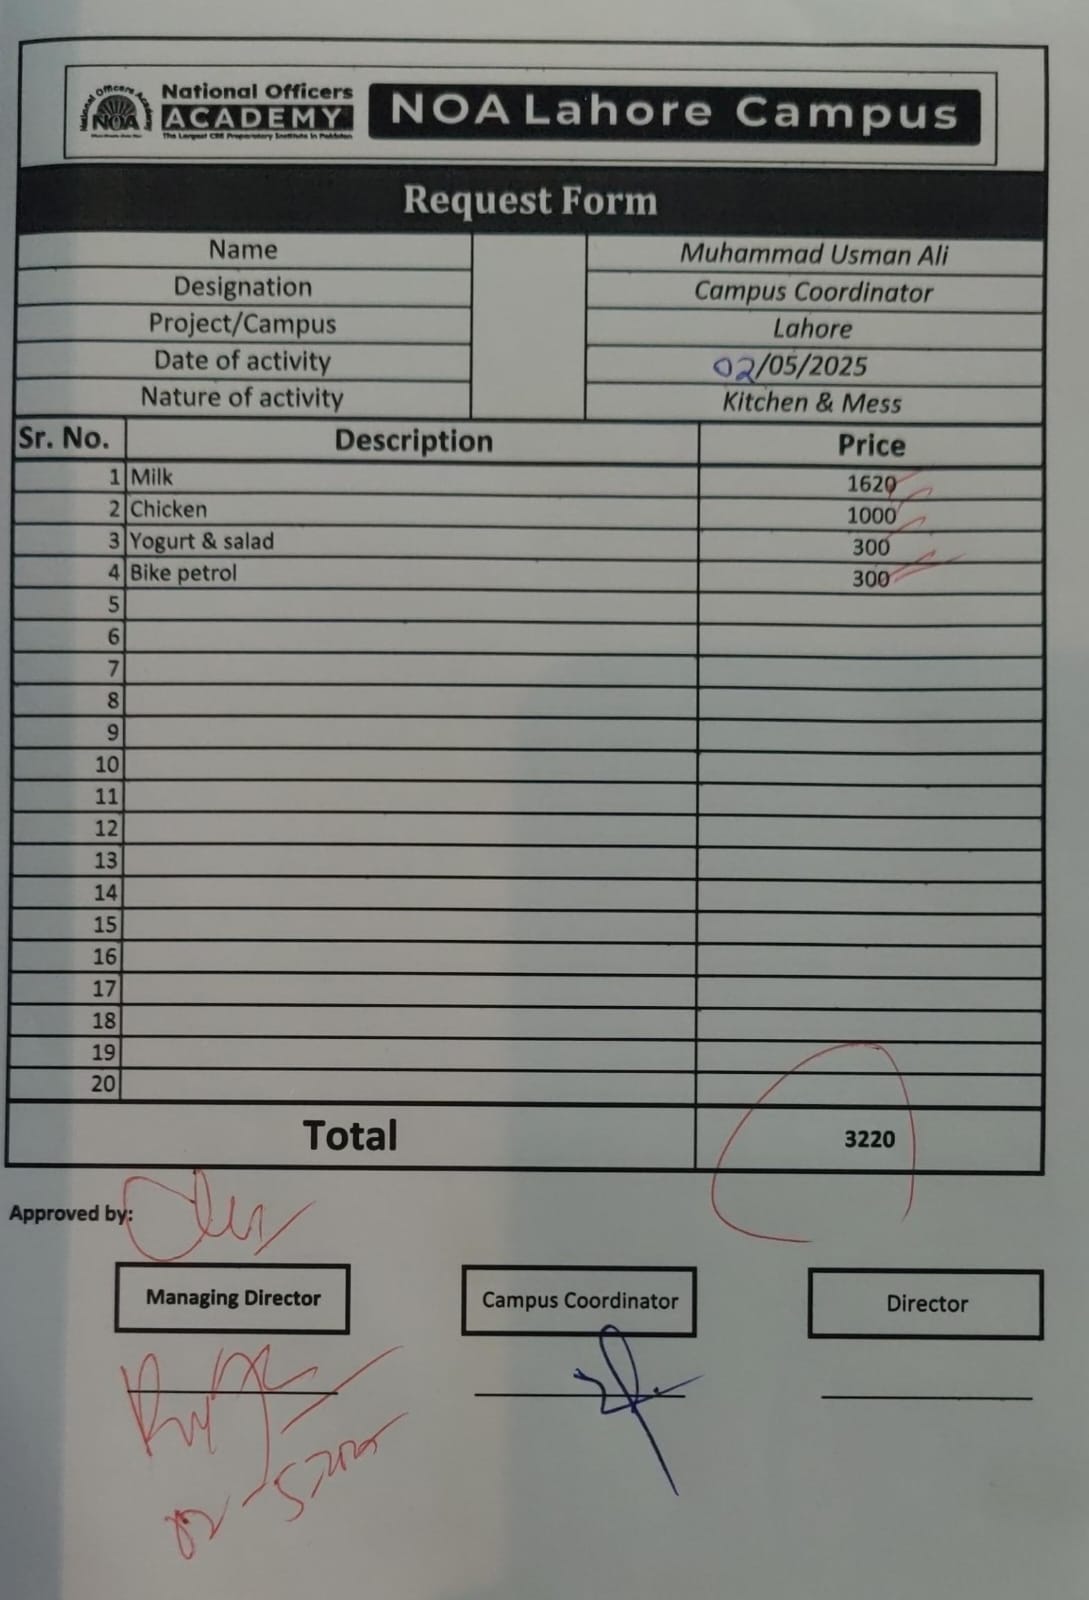 National Officers
ACADEMY
The Largest CSS Preparatory Institute in Pakistan
National Officers Academy
NOA
NOA Lahore Campus
Request Form
Name Muhammad Usman Ali
Designation Campus Coordinator
Project/Campus Lahore
Date of activity 02/05/2025
Nature of activity Kitchen & Mess
Sr. No. Description Price
1 Milk 1620
2 Chicken 1000
3 Yogurt & salad 300
4 Bike petrol 300
5
6
7
8
9
10
11
12
13
14
15
16
17
18
19
20
Total 3220
Approved by:
Managing Director Campus Coordinator Director